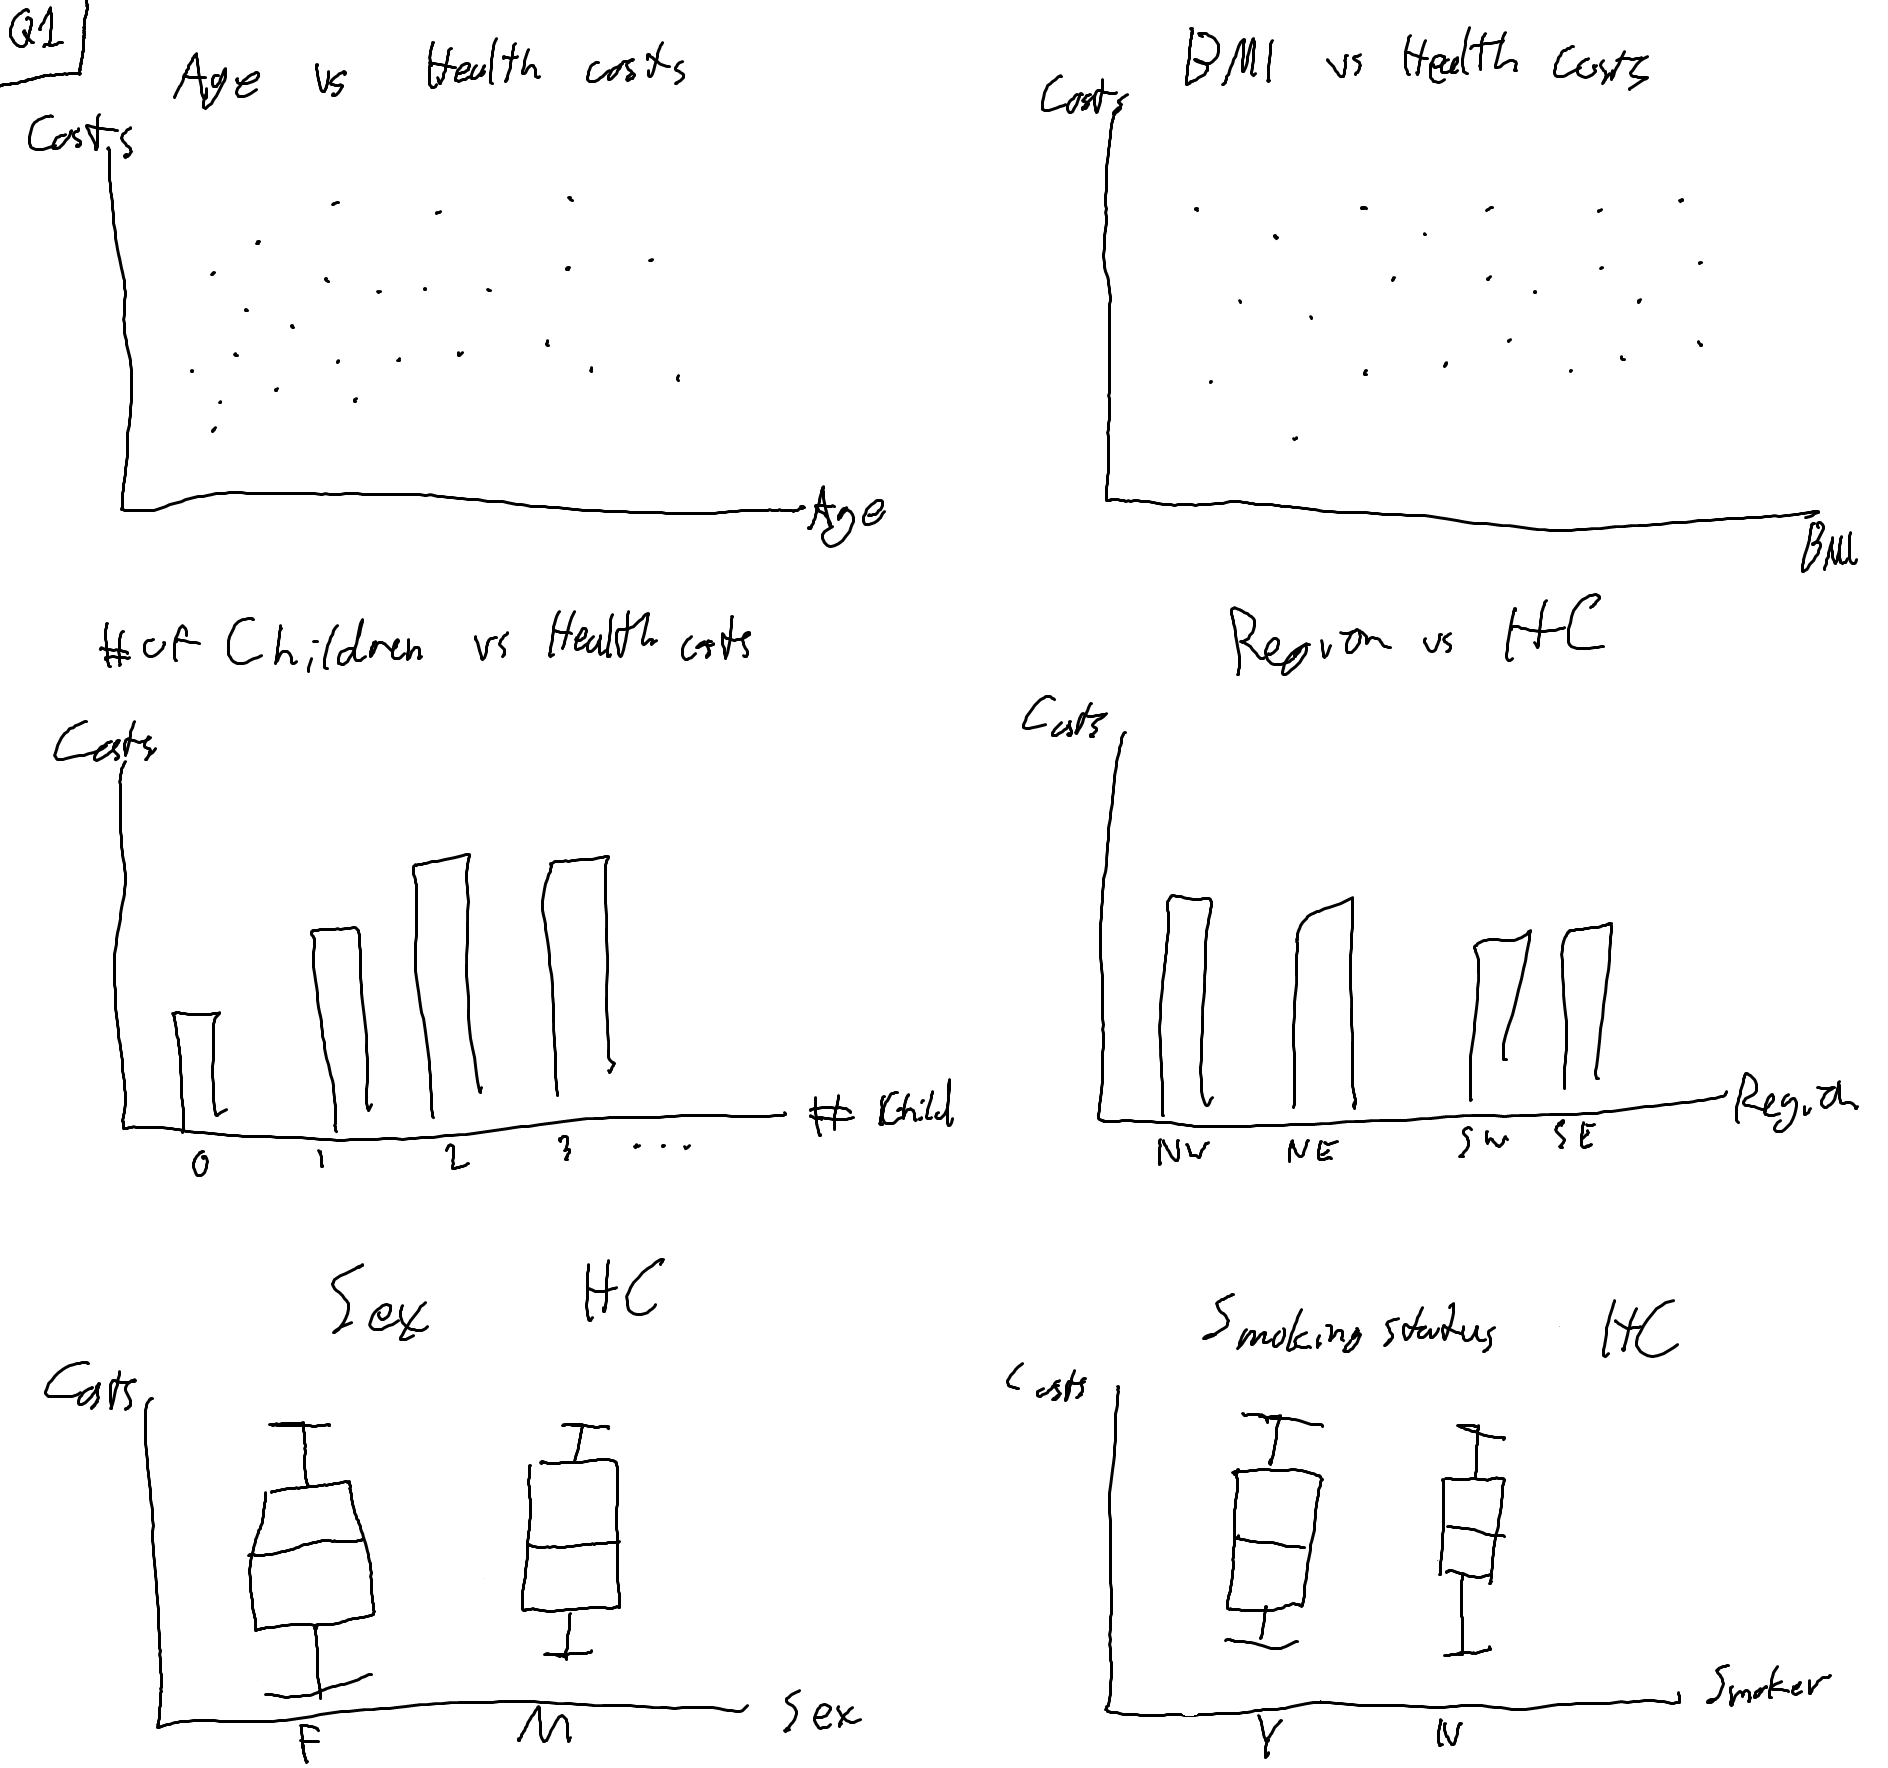 Q1
Age vs Health costs
Costs
Age
BMI vs Health Costs
Costs
BMI
# of Children vs Health costs
Costs
0 1 2 3 ...
# Child
Region vs HC
Costs
NW NE SW SE
Region
Sex HC
Costs
F M
Sex
Smoking status HC
Costs
Y N
Smoker